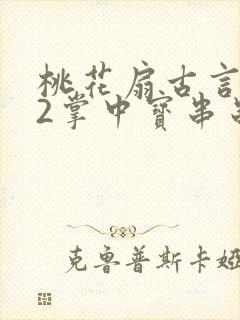 桃花扇古言
2掌中寳串
克鲁普斯卡娅